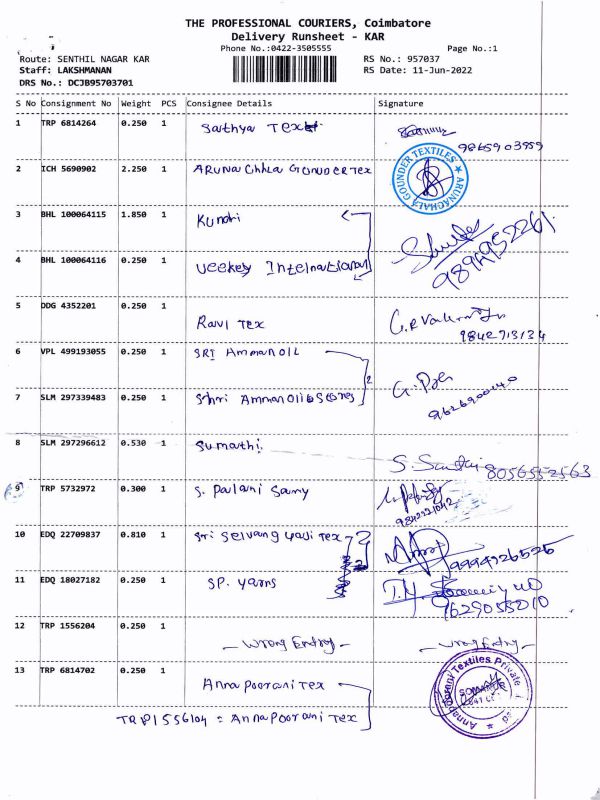 THE PROFESSIONAL COURIERS, Coimbatore
Delivery Runsheet - KAR
Phone No.:0422-3505555
Page No.:1
Route: SENTHIL NAGAR KAR
RS No.: 957037
Staff: LAKSHMANAN
RS Date: 11-Jun-2022
DRS No.: DCJB95703701
S No Consignment No Weight PCS Consignee Details Signature
1 TRP 6814264 0.250 1 Sathya Tex
9865903959
2 ICH 5690902 2.250 1 ARUNAChhLa GOUNDER TEX
ARUNACHALA GOUNDER TEXTILES
3 BHL 100064115 1.850 1 Kundri
9894952261
4 BHL 100064116 0.250 1 Veekey International
5 DDG 4352201 0.250 1 Ravi Tex
9842713134
6 VPL 499193055 0.250 1 SRI AmmanOIL
7 SLM 297339483 0.250 1 Shri AmmanOil&Stores
2
9626900140
8 SLM 297296612 0.530 1 Sumathi
8056552563
9 TRP 5732972 0.300 1 S. Palani Samy
9842221042
10 EDQ 22709837 0.810 1 Sri Selvanayaki Tex
9994726525
11 EDQ 18027182 0.250 1 SP. Yarns
9629055010
12 TRP 1556204 0.250 1 - Wrong Entry - - Wrong Entry -
13 TRP 6814702 0.250 1 Anna Poorani Tex
Annapoorani Textiles Private
SOMANUR
TRP1556104 = Anna Poorani Tex